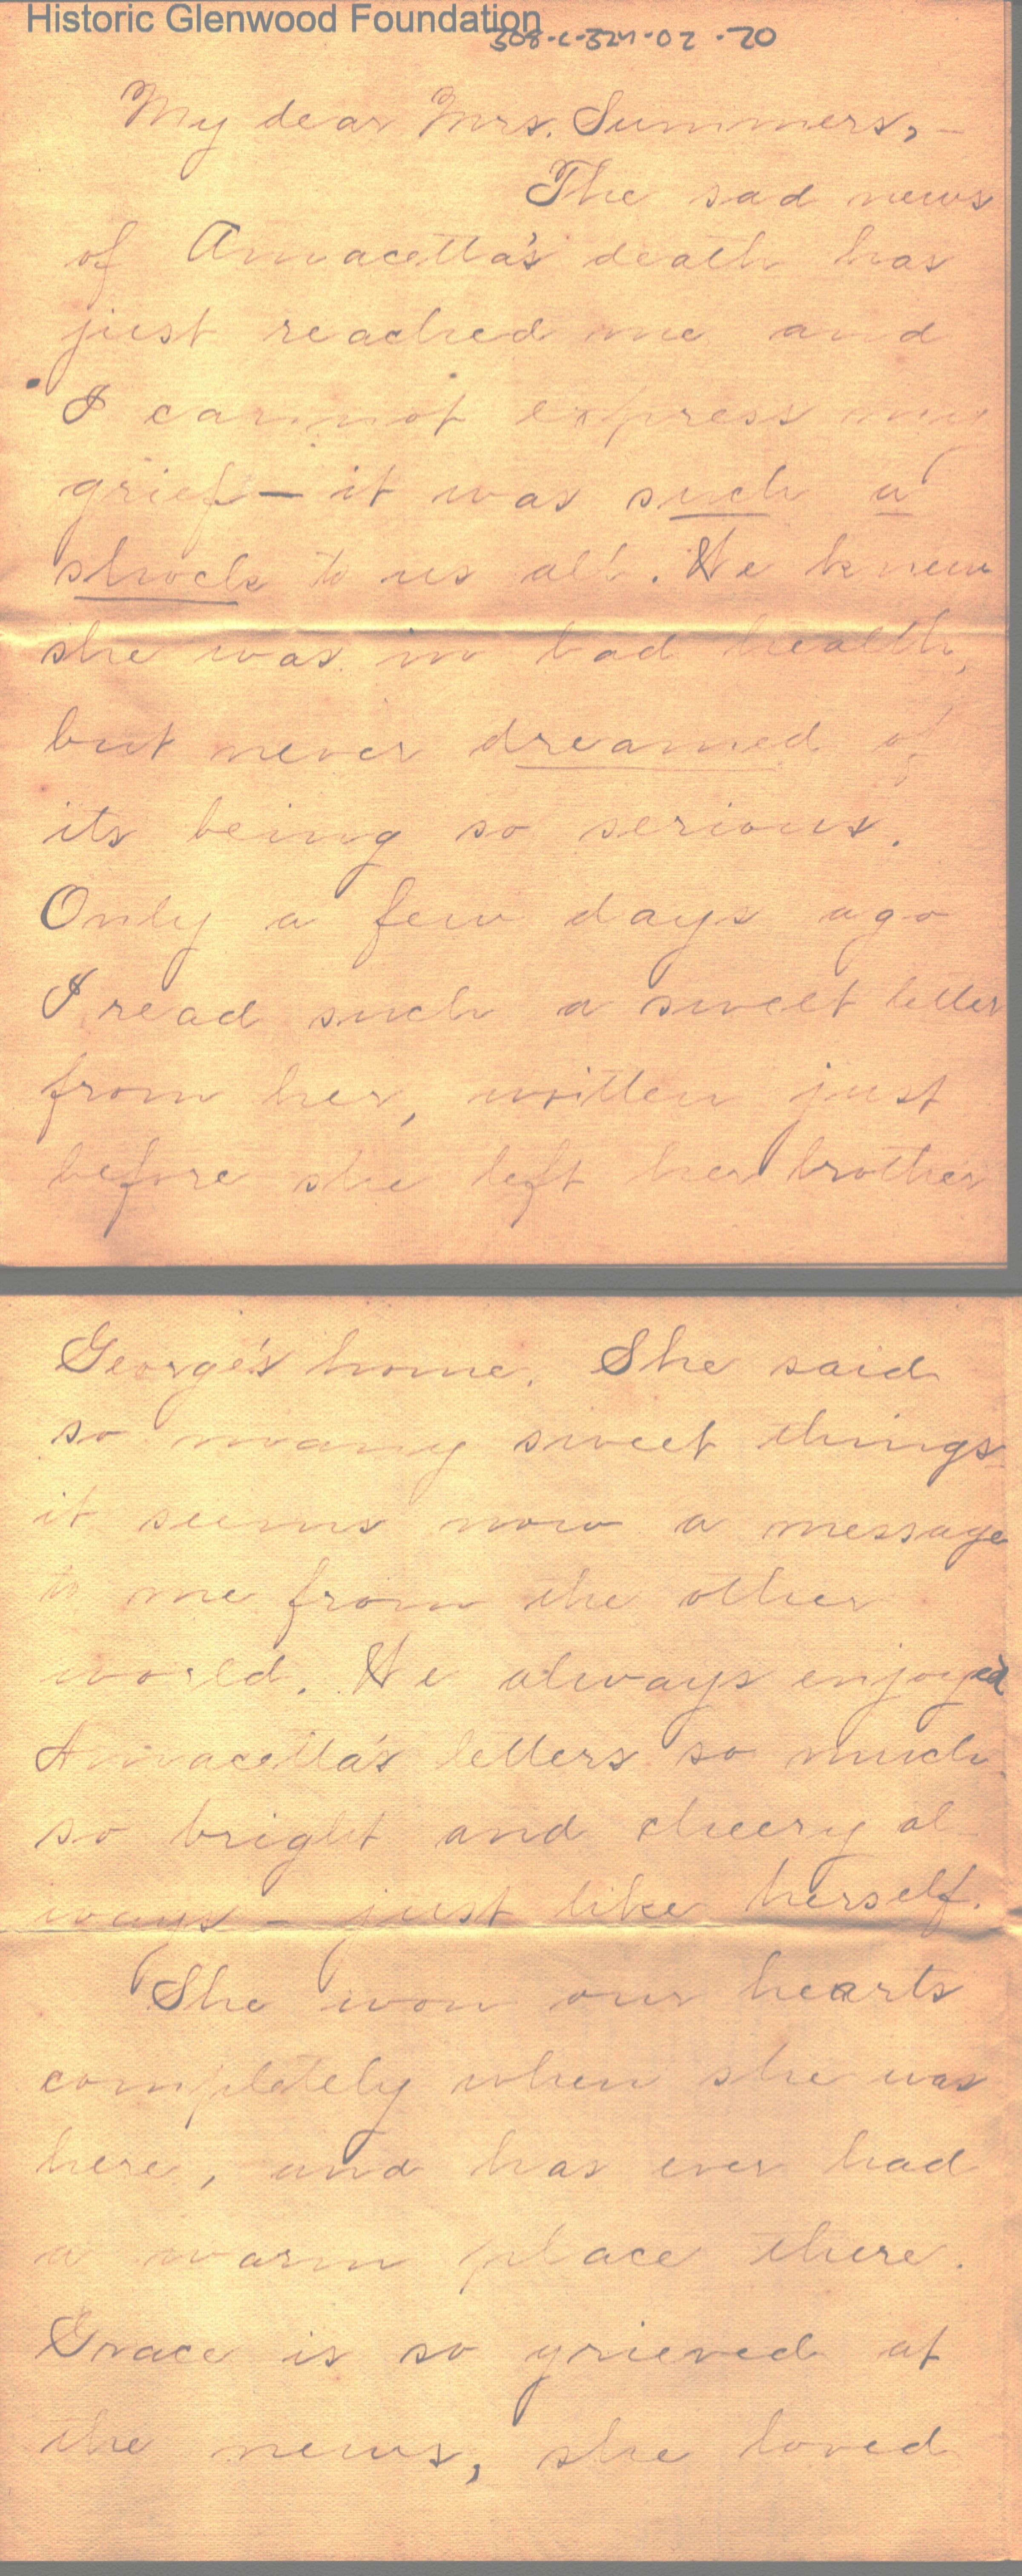 Historic Glenwood Foundation
308-C-324-02-20
My dear Mrs. Summers,-
The sad news
of Annacetta's death has
just reached me and
I cannot express my
grief - it was such a
shock to us all. We knew
she was in bad health,
but never dreamed of
its being so serious.
Only a few days ago
I read such a sweet letter
from her, written just
before she left her brother
George's home. She said
so many sweet things
it seems now a message
to me from the other
world. We always enjoyed
Annacetta's letters so much.
so bright and cheery al
ways - just like herself.
She won our hearts
completely when she was
here, and has ever had
a warm place there.
Grace is so grieved at
the news, she loved